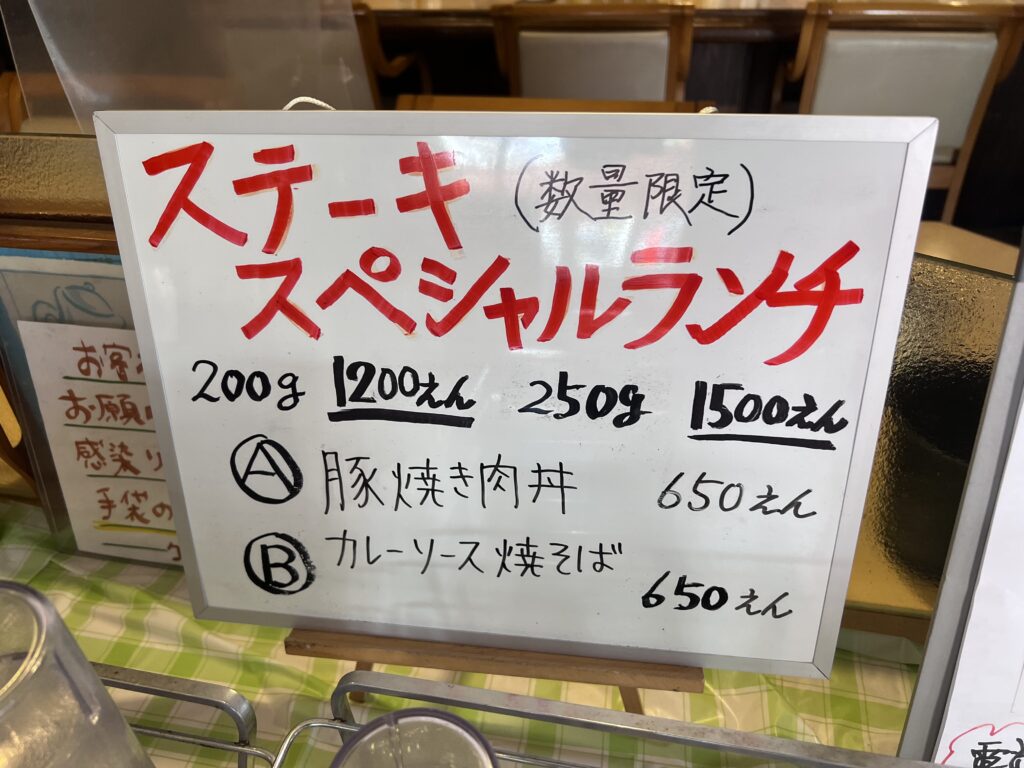 ステーキ (数量限定)
スペシャルランチ
200g 1200えん 250g 1500えん
Ⓐ 豚焼き肉丼 650えん
Ⓑ カレーソース焼そば
650えん
お客
お願い
感染
手袋の